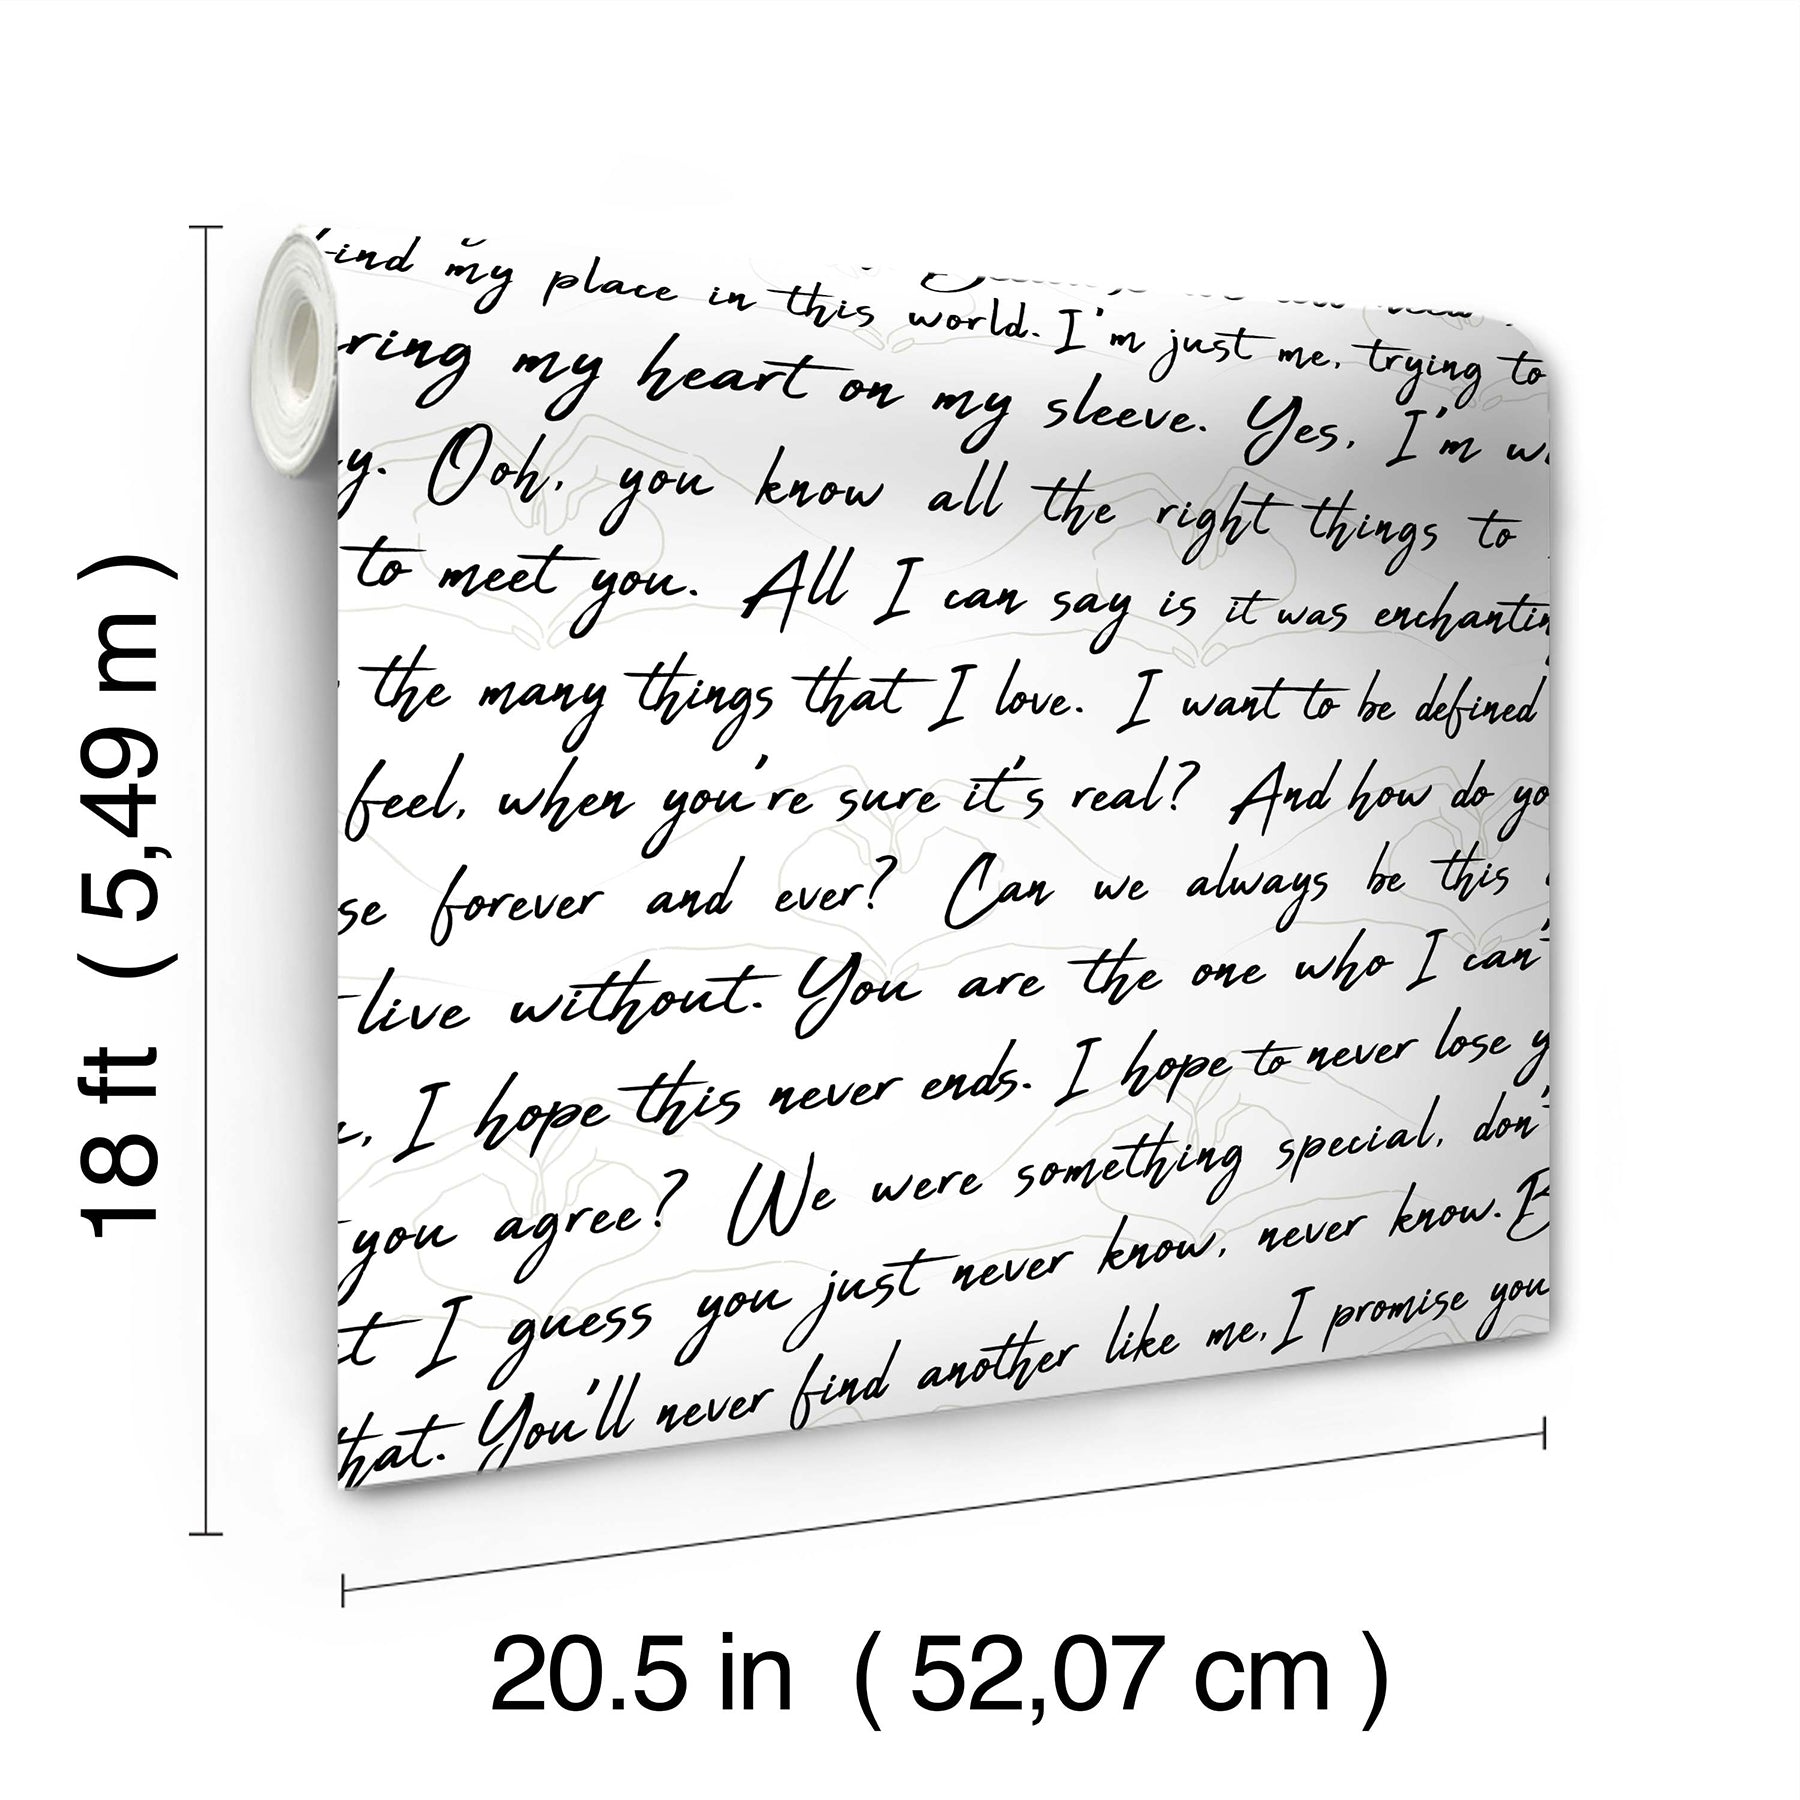 my place in this world. I'm just me, trying to
my heart on my sleeve. Yes, I'm
Ooh, you know all the right things to
to meet you. All I can say is it was enchantin
the many things that I love. I want to be defined
feel, when you're sure it's real? And how do yo
se forever and ever? Can we always be this
live without. You are the one who I can'
, I hope this never ends. I hope to never lose y
you agree? We were something special, don'
t I guess you just never know, never know. B
hat. You'll never find another like me, I promise you
18 ft ( 5,49 m )
20.5 in ( 52,07 cm )